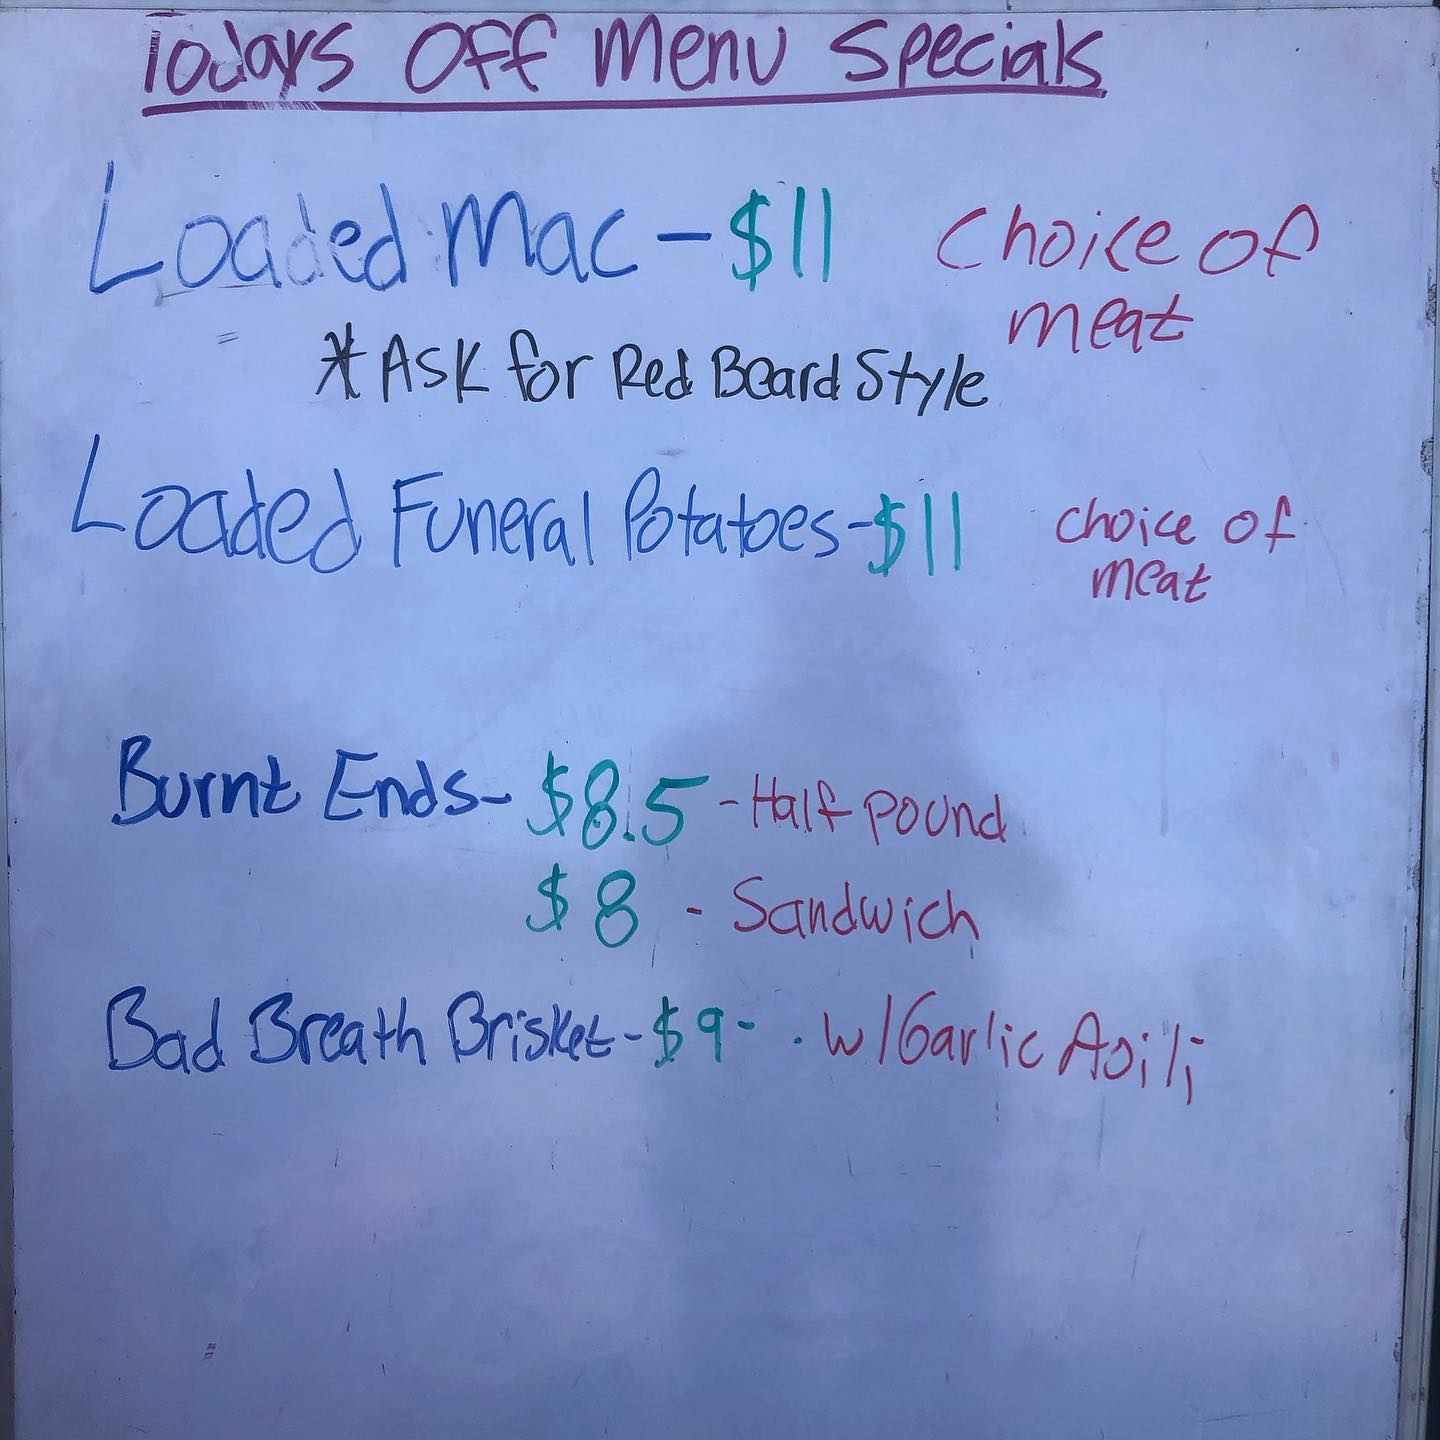 Todays Off Menu Specials
Loaded Mac - $11 Choice of
meat
*Ask for Red Beard Style
Loaded Funeral Potatoes - $11 choice of
meat
Burnt Ends - $8.5 - Half pound
$8 - Sandwich
Bad Breath Brisket - $9 - . w/Garlic Aoili